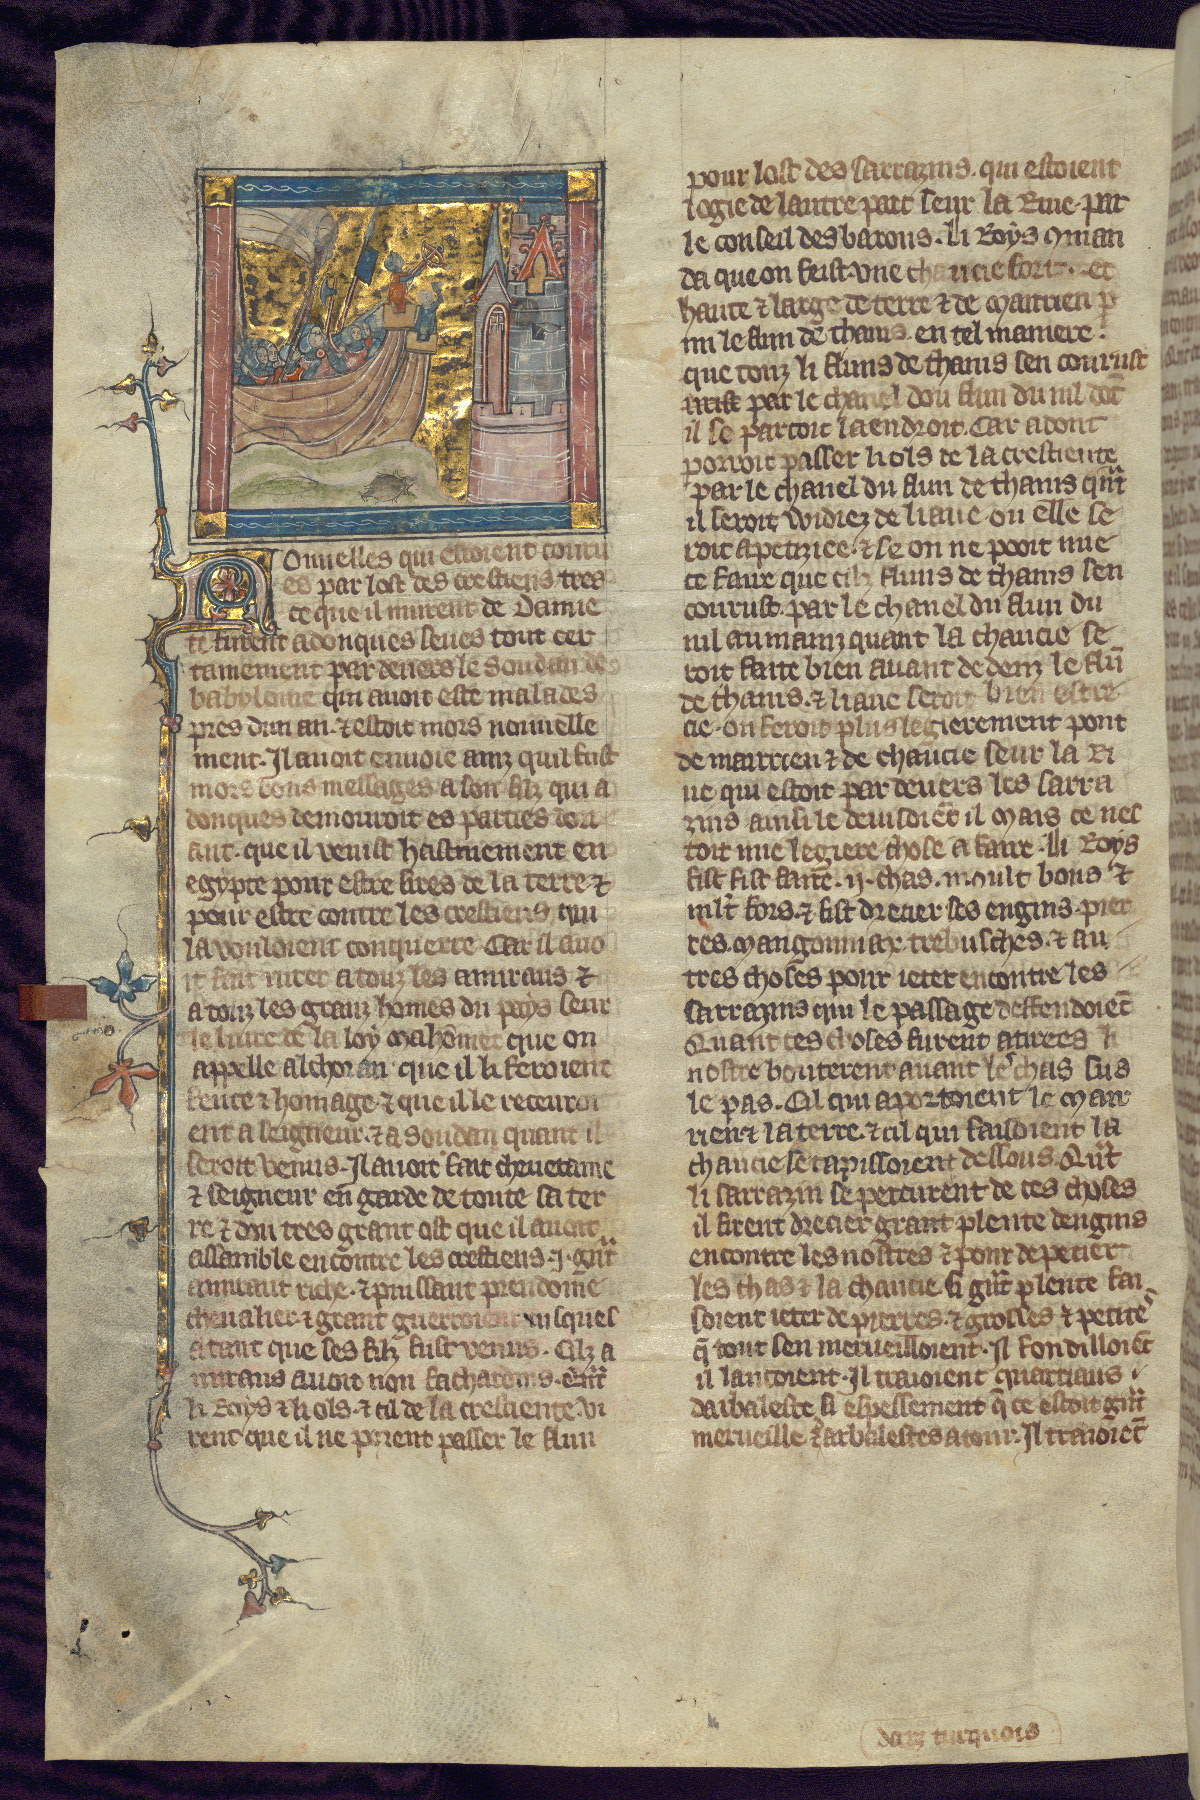 Nouuelles qui estoient couru
es par lost des crestiens tres
ce que il murent de Damie
te furent adonques seues tout cer
tainement par deuers le Soudan de
babyloine qui auoit este malades
pres dun an. ⁊ estoit mors nouuelle
ment. Il auoit enuoie ainz quil fust
mors bons messages a son filz qui a
donques demouroit es parties dori
ant. que il venist hastiuement en
egypte pour estre sires de la terre ⁊
pour estre contre les crestiens qui
la vouloient conquerre. Car il auo
it fait iurer a touz les amiraus ⁊
a touz les granz homes du pays seur
le liure de la loy mahõmet que on
appelle alchoran que il li feroient
feute ⁊ homage. ⁊ que il le receuroi
ent a seigneur. ⁊ a Soudan quant il
seroit venus. Il auoit fait cheuetaine
⁊ seigneur en garde de toute sa ter
re ⁊ dou tres grant ost que il auoit
assamble encontre les crestiens .j. grãt
amiraut riche. ⁊ puissant preudome
cheualier. ⁊ grant guerroieur iusques
a tant que ses filz fust venus. Cilz a
miraus auoit non fachardins. Quãt
li Roys ⁊ li ols. ⁊ cil de la crestiente vi
rent que il ne porent passer le flun
pour lost des sarrazins. qui estoient
logie de lautre part seur la Riue. par
le conseil des barons. Li Roys man
da que on feist vne chaucie fort. et
haute ⁊ large de terre ⁊ de marrien p
mi le flun de thanis. en tel maniere.
que touz li fluns de thanis sen courust
par le chanel dou flun du nil dõt
il se partoit la endroit. Car adont
porroit passer li ols de la crestiente
par le chanel du flun de thanis quãt
il seroit widiez de liaue ou elle se
roit apetizice. ⁊ se on ne pooit mie
ce faire que cilz fluns de thanis sen
courust. par le chanel du flun du
nil au mainz quant la chaucie se
roit faite bien auant dedenz le flũ
de thanis. ⁊ liaue seroit bien estre
cie. on feroit plus legierement pont
de marrien ⁊ de chaucie seur la Ri
ue qui estoit par deuers les sarra
zins ainsi le deuisoiẽt il mais ce nes
toit mie legiere chose a faire. Li Roys
fist fist faire .ij. chas. moult bons ⁊
mlt fors. ⁊ fist drecier ses engins. pier
res. mangonniax. trebusches. ⁊ au
tres choses pour ieter encontre les
sarrazins qui le passage deffendoiẽt
Quant ces choses furent atirees li
nostre bouterent auant les chas sus
le pas. Cil qui aportoient le mar
rien ⁊ la terre. ⁊ cil qui faisoient la
chaucie se tapissoient dessous. Quãt
li sarrazin se percurent de ces choses
il firent drecier grant plente dengins
encontre les nostres ⁊ pour depecier
les chas ⁊ la chaucie. si grãt plente fai
soient ieter de pierres. ⁊ grosses ⁊ petites
q̃ tout sen merueilloient. Il fondilloiẽt
il lancoient. Il traioient quarriaus
darbaleste si espessement q̃ ce estoit grãt
merueille ⁊ arbalestes a tour. Il traioiẽt
darz turquois